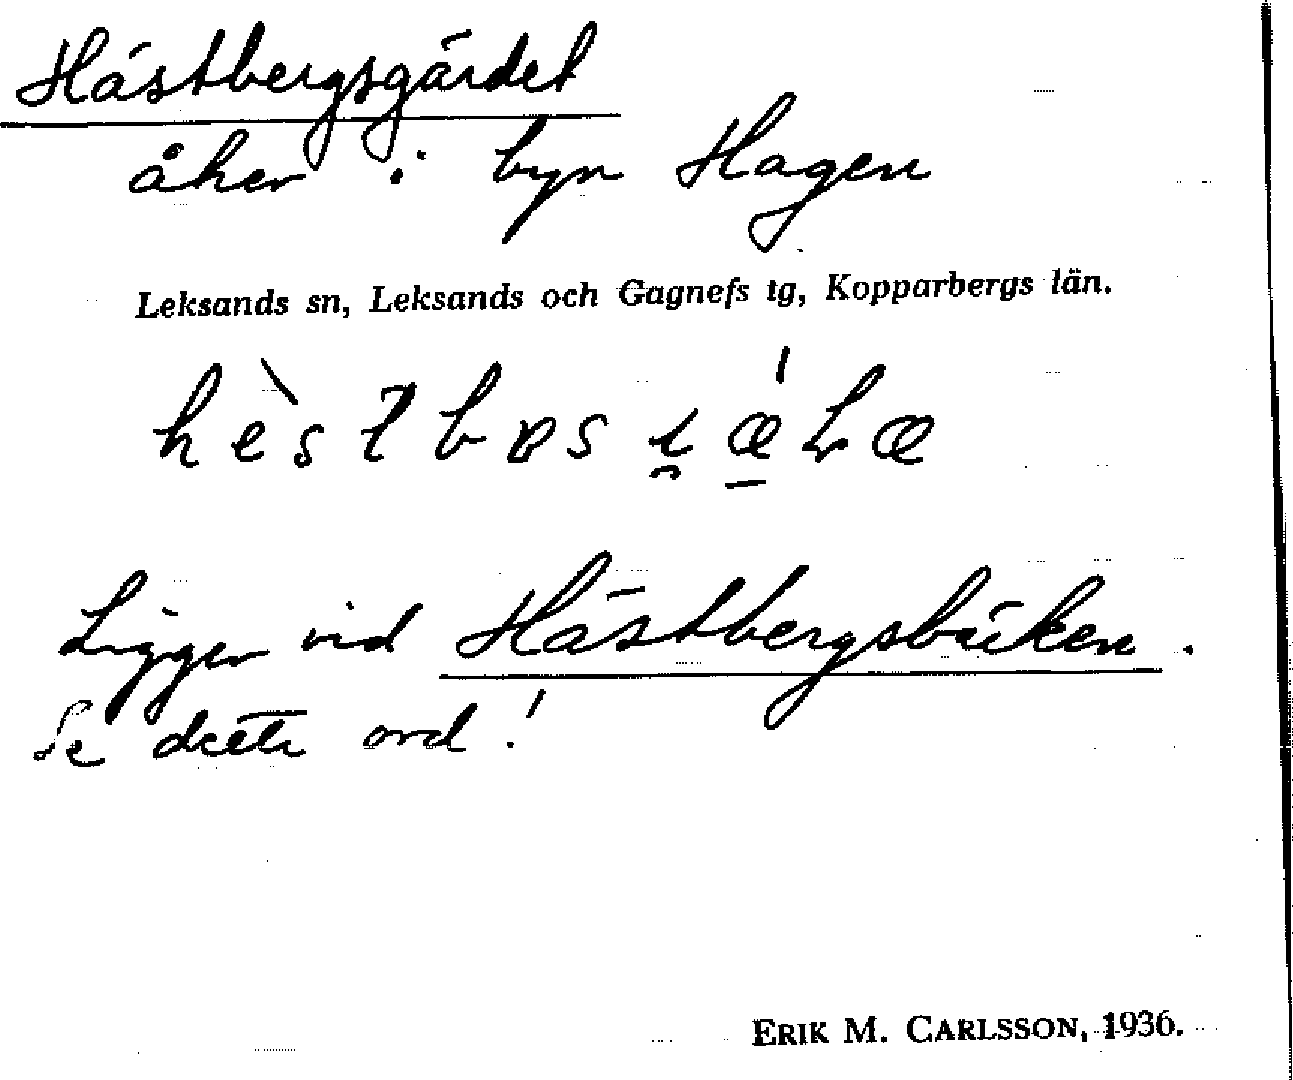 Hästbergsgärdet
åker i byn Hagen
Leksands sn, Leksands och Gagnefs tg, Kopparbergs län.
Ligger vid Hästbergsbäcken.
Se detta ord!
ERIK M. CARLSSON, 1936.